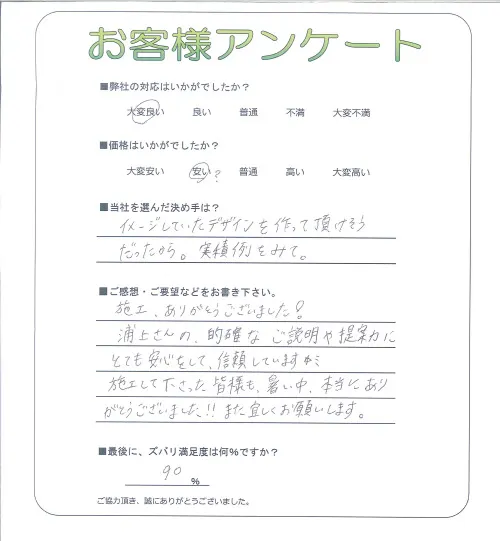 お客様アンケート
■弊社の対応はいかがでしたか？
大変良い 良い 普通 不満 大変不満
■価格はいかがでしたか？
大変安い 安い ? 普通 高い 大変高い
■当社を選んだ決め手は？
イメージしていたデザインを作って頂けそう
だったから。実績例をみて。
■ご感想・ご要望などをお書き下さい。
施工、ありがとうございました!
浦上さんの、的確な ご説明や提案力に
とても安心をして、信頼しています
施工して下さった 皆様も、暑い中、本当に あり
がとうございました!! また宜しくお願いします。
■最後に、ズバリ満足度は何％ですか？
90
％
ご協力頂き、誠にありがとうございました。